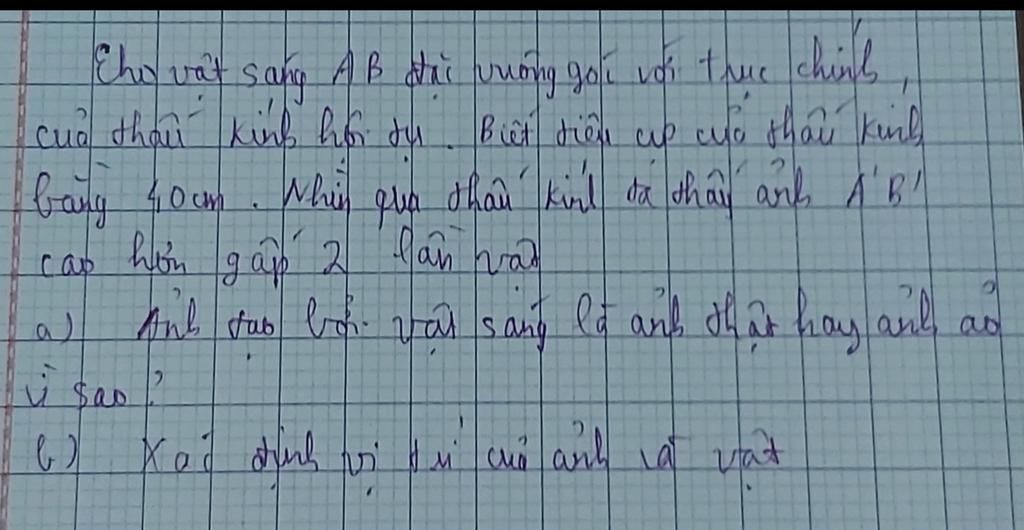 Cho vật sáng AB đặt vuông góc với trục chính,
của thấu kính hội tụ. Biết tiêu cự của thấu kính
bằng 40cm. Nhìn qua thấu kính ta thấy ảnh A'B'
cao hơn gấp 2 lần vật
a) Ảnh tạo bởi vật sáng là ảnh thật hay ảnh ảo
vì sao?
b) Xác định vị trí của ảnh và vật